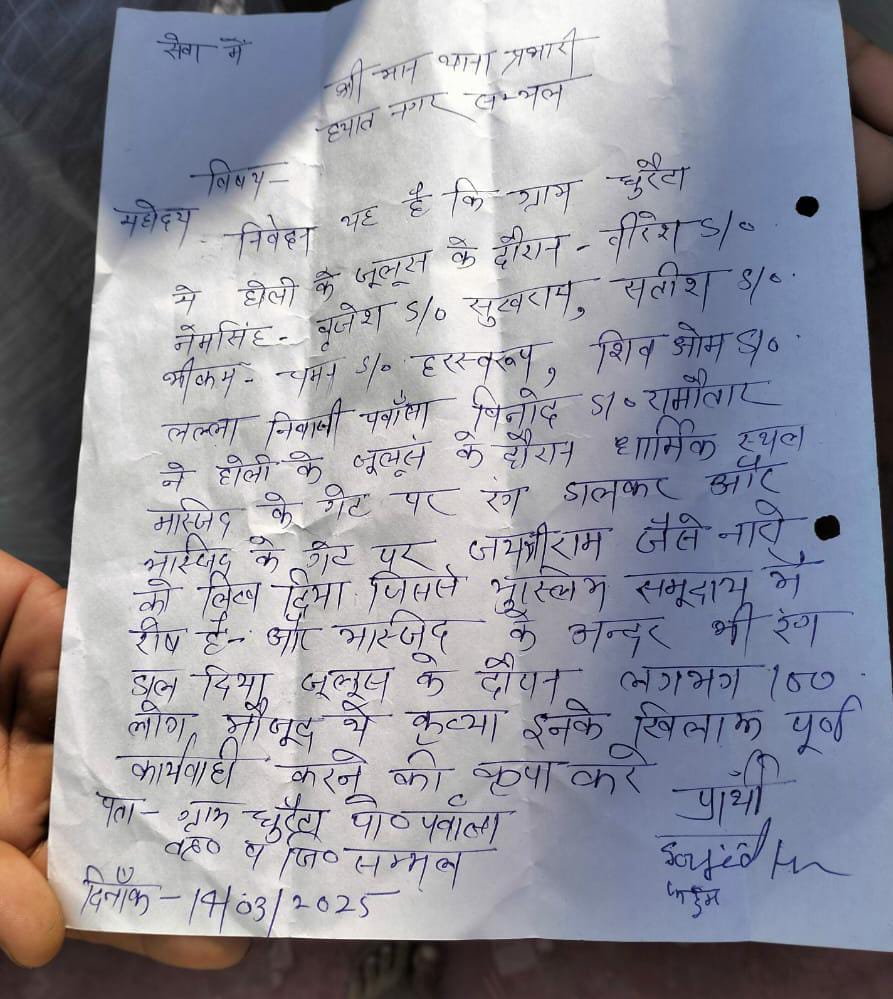 सेवा में
श्री मान थाना प्रभारी
हयात नगर सम्भल
विषय -
महोदय
निवेदन यह है कि ग्राम धुरैटा
मे होली के जूलूस के दौरान - वीरेश S/०
नेमसिंह - बृजेश S/० सुखराम, सतीश S/०
श्रीकम - चमन S/० हरस्वरूप, शिव ओम S/०
लल्ला निवासी पवाँसा विनोद S/० रामौतार
ने होली के जूलूस के दौरान धार्मिक स्थल
मास्जिद के गेट पर रंग डालकर और
मास्जिद के गेट पर जयश्रीराम जैसे नारे
को लिख दिया जिससे मुस्लिम समूदाय में
रोष है - और मास्जिद के अन्दर भी रंग
डाल दिया जूलूस के दौरान लगभग 100
लोग मौजूद थे कृप्या इनके खिलाफ पूर्ण
कार्यवाही करने की कृपा करे
प्रार्थी
पता - ग्राम धुरैटा पो० पवाँसा
तह० व जि० सम्भल
दिनाँक - 14/03/2025